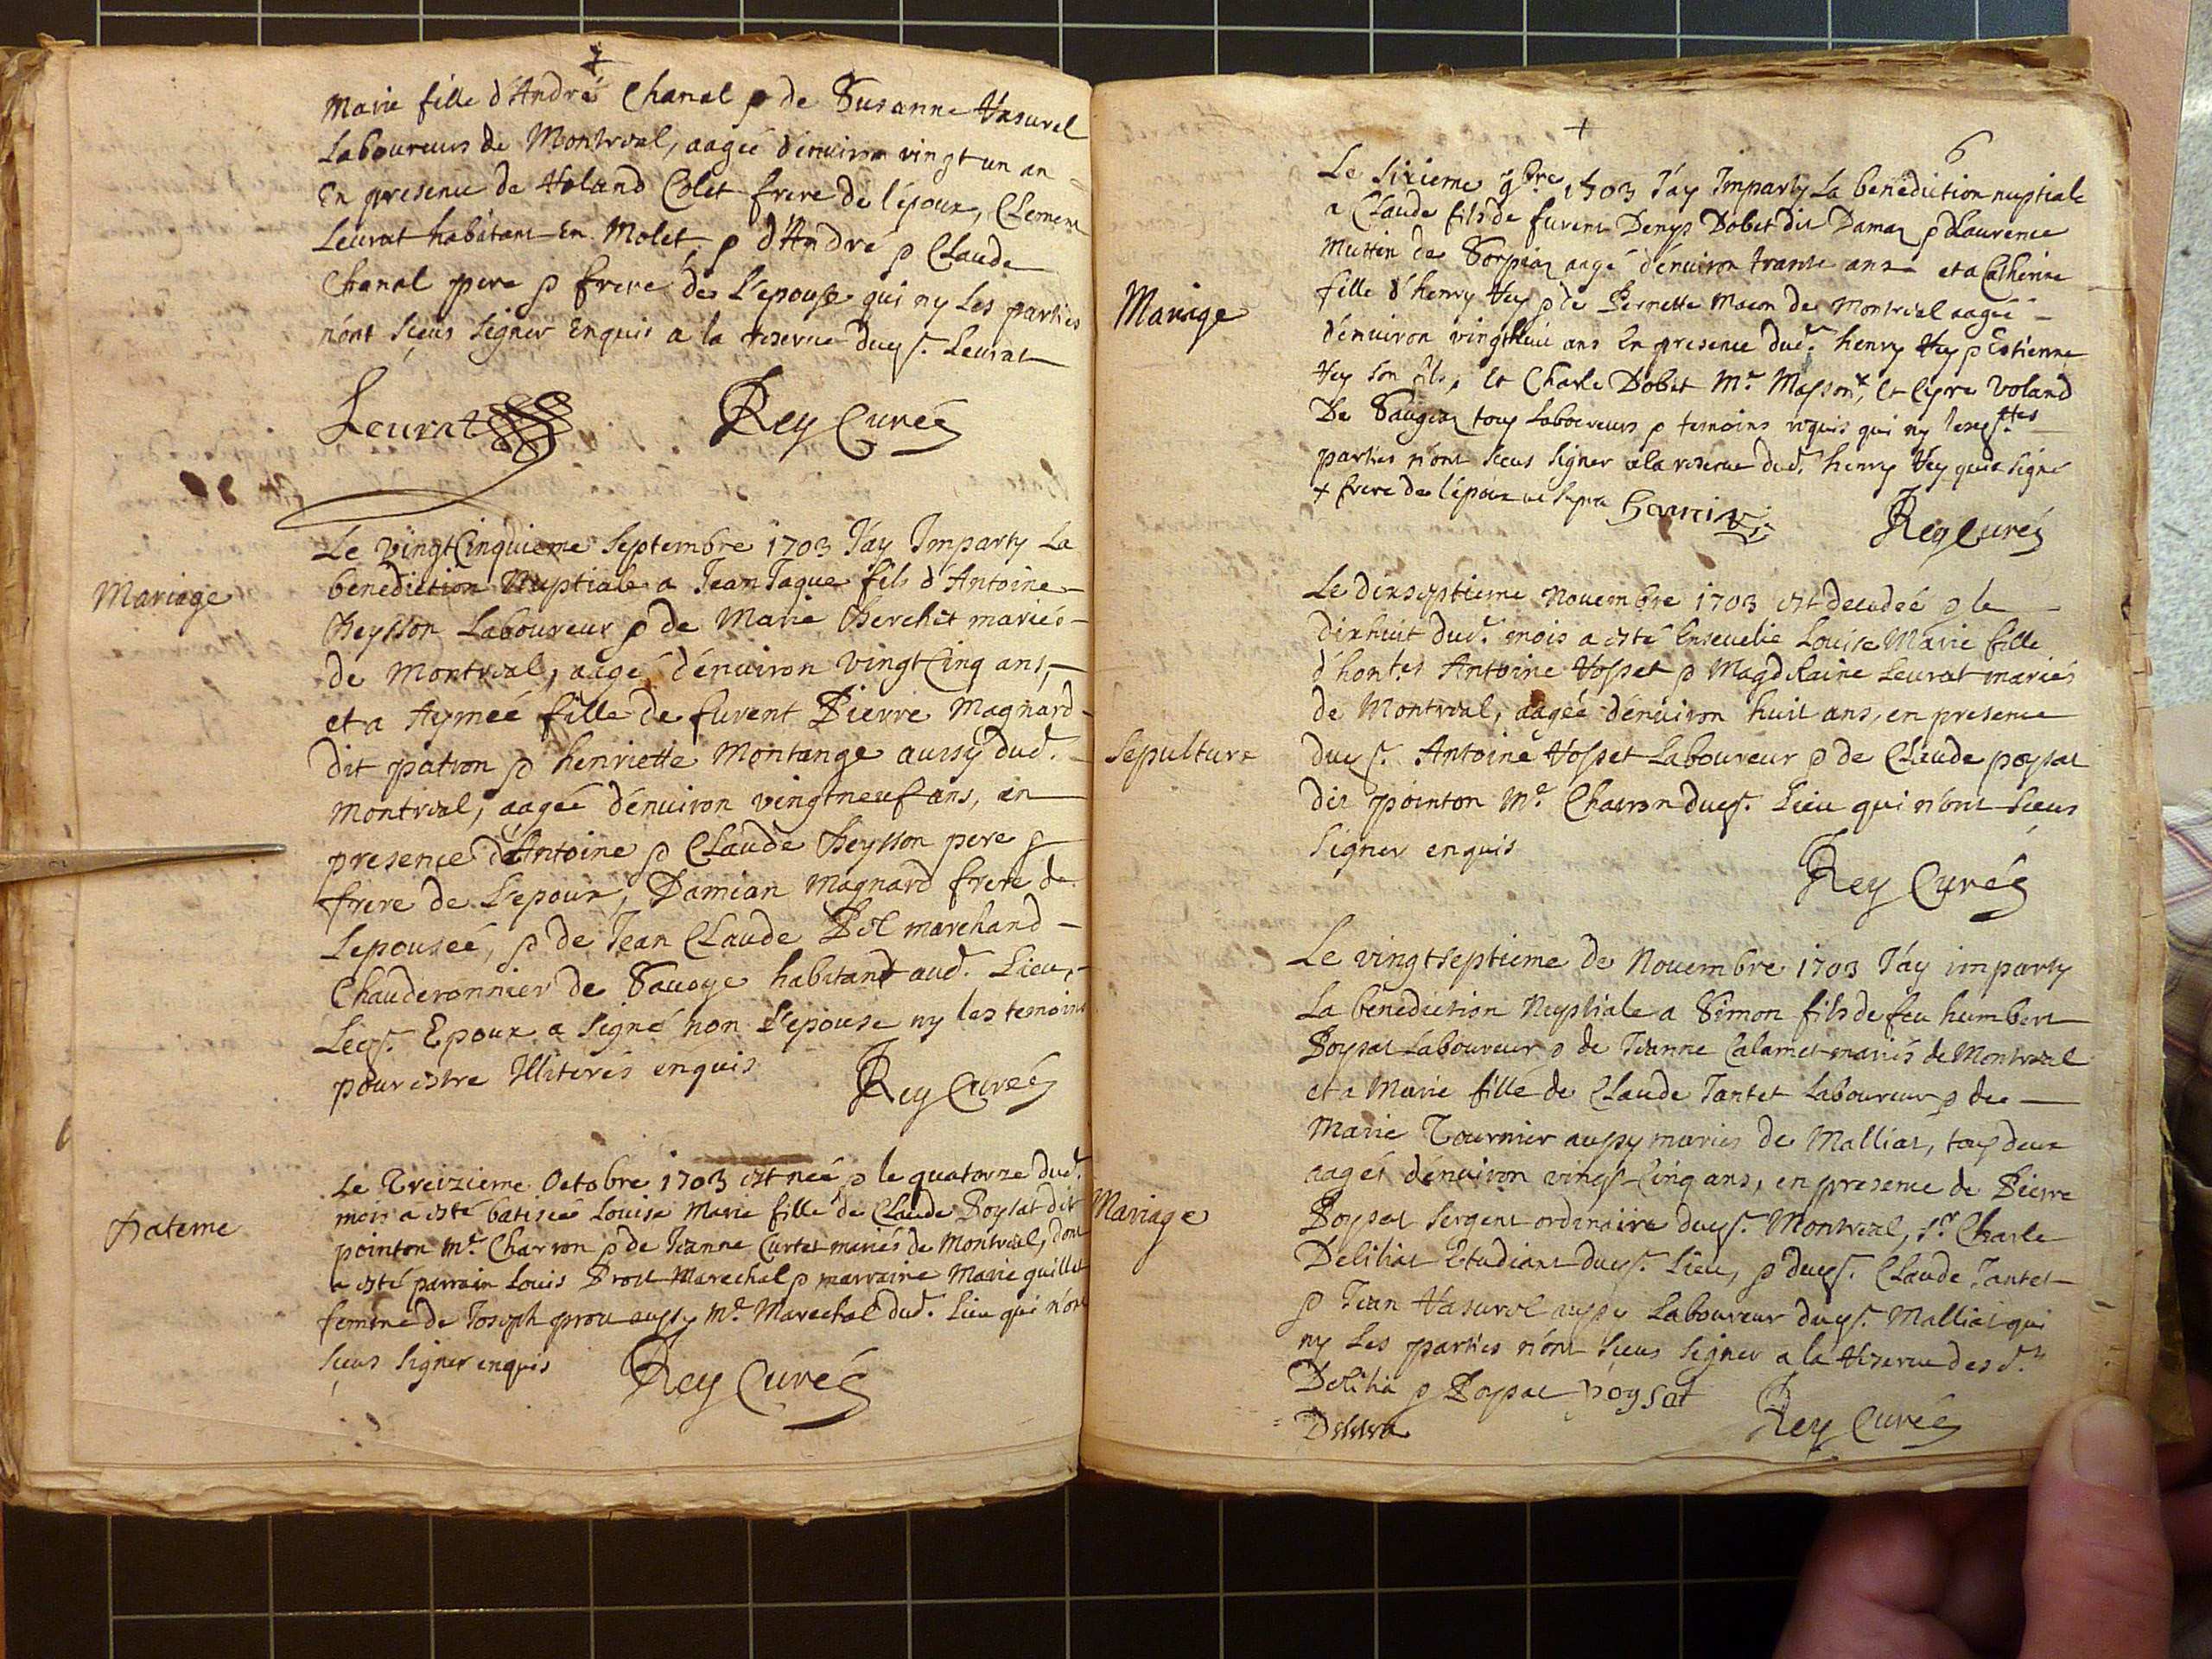 Marie fille d'André Chanal & de Susanne Vasurel
Laboureurs de Montreal, aageé d'enuiron vingt un an
En presence de Roland Colet frere de l'époux, Clement
Leurat habitant En Molet, & d'André & Claude
Chanal pere & frere de L'epouse qui ny Les parties
n'ont sçeus signer Enquis a la reserue duq. Leurat
Leurat
Rey Curé
Mariage
Le vingt Cinquieme Septembre 1703 J'ay Imparty La
benediction Nuptiale a Jean Jaque fils d'Antoine
Laboureur & de Marie mariés
de Montreal, aagé d'enuiron vingt Cinq ans,
et a Aymeé fille de furent Pierre Magnard
dit patron & henriette Montange aussy dud.
Montreal, aageé d'enuiron vingt neuf ans, en
presence d'Antoine & Claude pere &
frere de L'epoux, Damian Magnard frere de
Lepouseé, & de Jean Claude marchand
Chauderonnier de Sauoye habitant aud. Lieu,
Leq. Epoux a signé non L'epouse ny les temoins
pour estre Illiterés enquis
Rey Curé
Bateme
Le Treizieme Octobre 1703 est neé & le quatorze dud.
mois a esté batiseé Louise Marie fille de Claude Poysat dit
pointon Me. Charron & de Jeanne Curtet mariés de Montreal, dont
a esté parrain Louis Prost Marechal & marraine Marie guillet
femme de Joseph prou aussy Me. Marechal dud. Lieu qui n'ont
sçeus signer enquis
Rey Curé
6
Mariage
Le sixieme 9bre 1703 J'ay Imparty La benediction nuptiale
a Claude fils de furent Denys Dobet dit Damaz & Laurence
Muttin de aagé d'enuiron trante ans et a Catherine
fille d'henry Vey & de Pernette Macon de Montreal aageé
d'enuiron vingthuit ans En presence dud. henry Vey & Estienne
Vey son fils, Et Charle Dobet Me. Masson +, Et Voland
De tous Laboureurs & temoins requis qui ny lesq.
parties n'ont sceus signer a la reserue dud. henry Vey qui a signé
+ frere de l'époux ut supra
Rey Curé
Sepulture
Le dixseptieme Nouembre 1703 est decedeé & le
dixhuit dud. mois a esté Enseuelie Louise Marie fille
d'hontes Antoine Vosset & Magdelaine Leurat mariés
de Montreal, aageé d'enuiron huit ans, en presence
duq. Antoine Vosset Laboureur & de Claude poysat
dit pointon Me. Charron duq. Lieu qui n'ont sceus
signer enquis
Rey Curé
Mariage
Le vingt septieme de Nouembre 1703 J'ay imparty
La benediction Nuptiale a Simon fils de feu humbert
Poysat Laboureur & de Jeanne Calamet mariés de Montreal
et a Marie fille de Claude Tantet Laboureur & de
Marie Tournier aussy mariés de Malliat, tous deux
aagés d'enuiron vingt Cinq ans, en presence de Pierre
Poysat sergent ordinaire duq. Montreal, sr. Charle
Delilia Etudiant duq. Lieu, & duq. Claude Tantet
& Jean Vasurel aussy Laboureur duq. Malliat qui
ny Les parties n'ont sçeus signer a la reserue desd.
Delilia & Poysat poysat
Delilia
Rey Curé